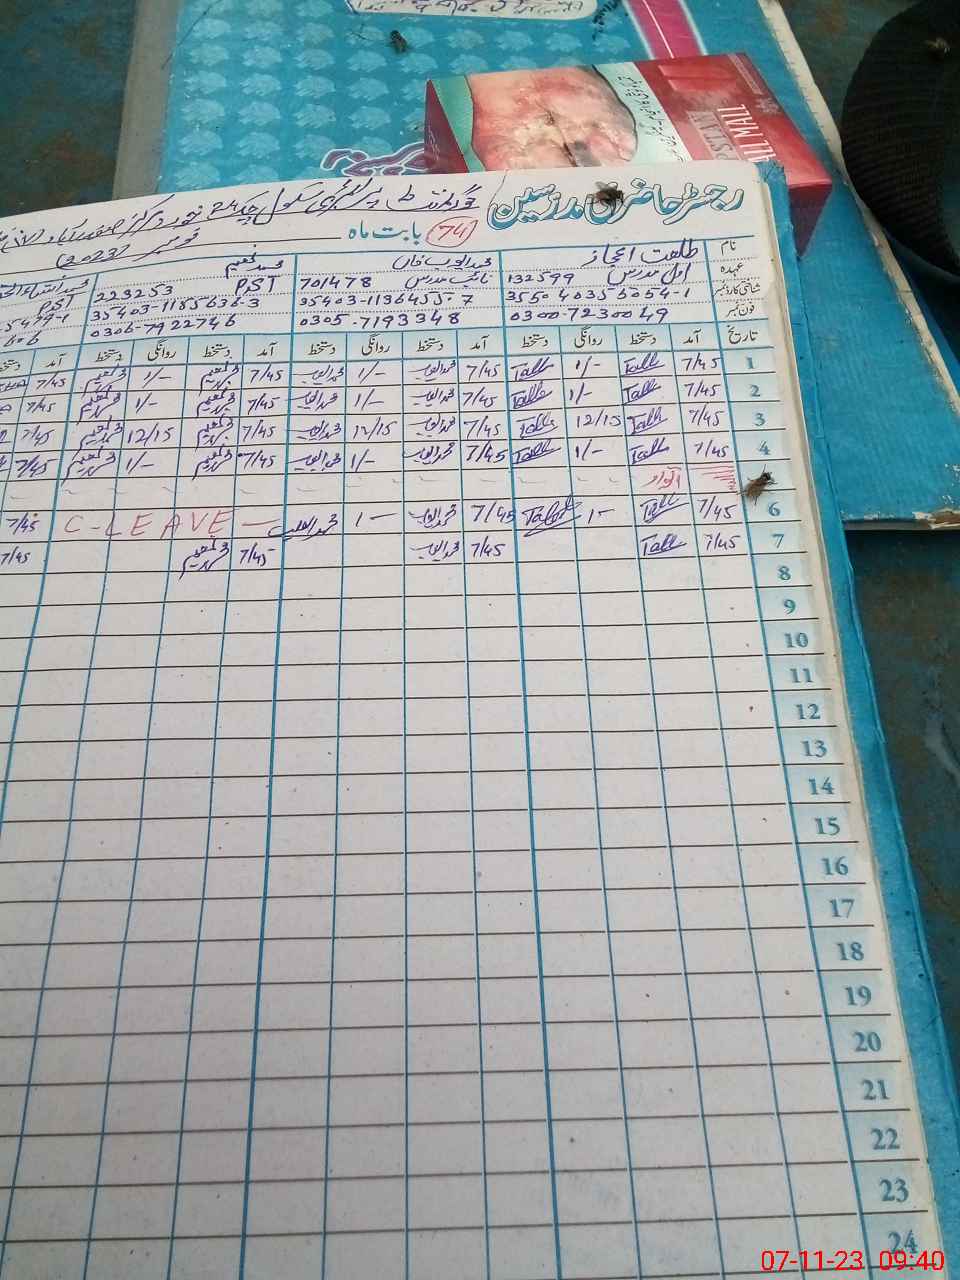 PALL MALL
رجسٹر حاضری مدرسین
گورنمنٹ پرائمری سکول چک 24
بابت ماہ
74
نومبر 2023
نام طلعت اعجاز محمد ایوب خان محمد نعیم
عہدہ اول مدرس 132599 نائب مدرس 701478 PST 223253 PST
شناختی کارڈ نمبر 35404035 6054-1 35403-1136455-7 35403-1185636-3
فون نمبر 0300-7230049 0305-7193348 0306-7922746
تاریخ آمد دستخط روانگی دستخط آمد دستخط روانگی دستخط آمد دستخط روانگی دستخط آمد
1 7/45 Talle 1/- Talle 7/45 محمد ایوب 1/- محمد ایوب 7/45 محمد نعیم 1/- محمد نعیم 7/45
2 7/45 Talle 1/- Talle 7/45 محمد ایوب 1/- محمد ایوب 7/45 محمد نعیم 1/- محمد نعیم 7/45
3 7/45 Talle 12/15 Talle 7/45 محمد ایوب 12/15 محمد ایوب 7/45 محمد نعیم 12/15 محمد نعیم 7/45
4 7/45 Talle 1/- Talle 7/45 محمد ایوب 1/- محمد ایوب 7/45 محمد نعیم 1/- محمد نعیم 7/45
اتوار
6 7/45 Talle 1- 7/45 محمد ایوب 1- محمد ایوب C-LEAVE 7/45
7 7/45 Talle 7/45 محمد ایوب 7/45 محمد نعیم 7/45
8
9
10
11
12
13
14
15
16
17
18
19
20
21
22
23
24
07-11-23 09:40